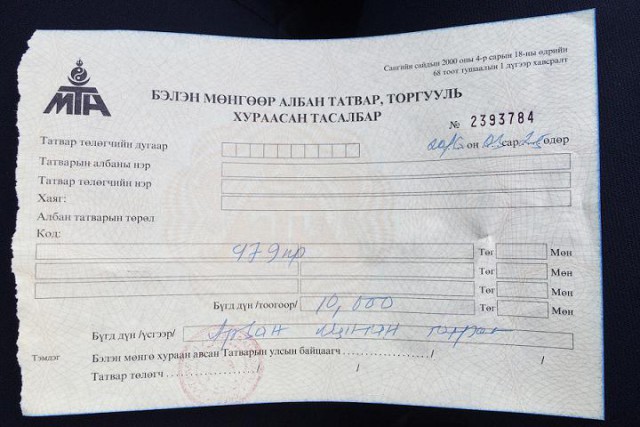 Сангийн сайдын 2000 оны 4-р сарын 18-ны өдрийн
68 тоот тушаалын 1 дүгээр хавсралт
МТА
БЭЛЭН МӨНГӨӨР АЛБАН ТАТВАР, ТОРГУУЛЬ
ХУРААСАН ТАСАЛБАР
№ 2393784
Татвар төлөгчийн дугаар
он сар 25 өдөр
Татварын албаны нэр
Татвар төлөгчийн нэр
Хаяг:
Албан татварын төрөл
Код:
979 Төг Мөн
Төг Мөн
Төг Мөн
Бүгд дүн /тоогоор/ 10,000 Төг Мөн
Бүгд дүн /үсгээр/ Арван мянган төгрөг
Тэмдэг Бэлэн мөнгө хураан авсан Татварын улсын байцаагч / /
Татвар төлөгч / /